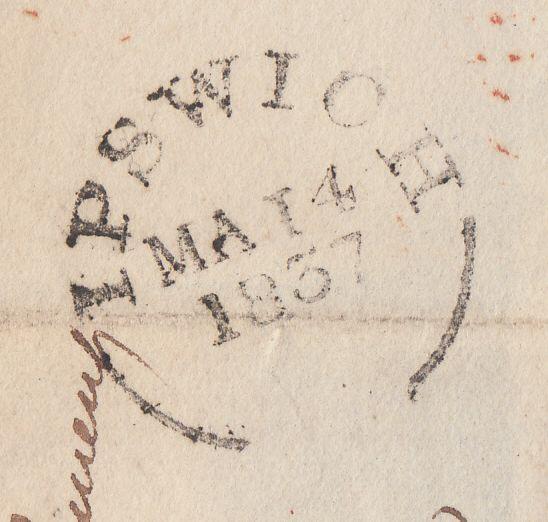 IPSWICH
MA 14
1837